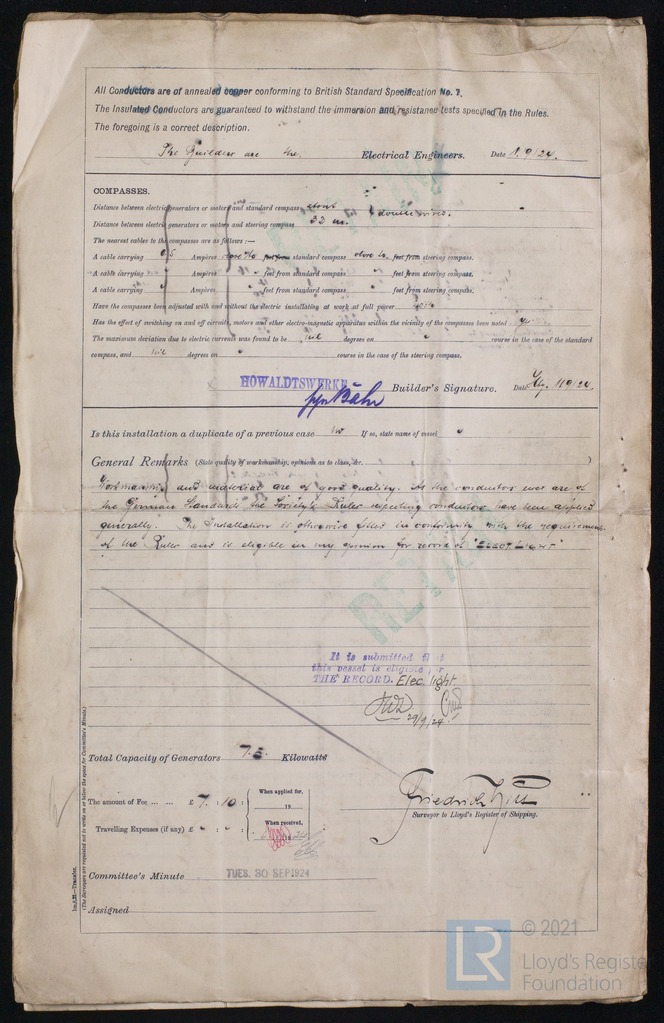 All Conductors are of annealed copper conforming to British Standard Specification No. 7.
The Insulated Conductors are guaranteed to withstand the immersion and resistance tests specified in the Rules.
The foregoing is a correct description.
The Builders are the. Electrical Engineers. Date 1.9/24.
COMPASSES.
Distance between electric generators or motors and standard compass about
Distance between electric generators or motors and steering compass 32 m. double wired.
The nearest cables to the compasses are as follows:—
A cable carrying 0.5 Ampères close to feet from standard compass close to feet from steering compass.
A cable carrying " Ampères " feet from standard compass " feet from steering compass.
A cable carrying " Ampères " feet from standard compass " feet from steering compass.
Have the compasses been adjusted with and without the electric installation at work at full power
Has the effect of switching on and off circuits, motors and other electro-magnetic apparatus within the vicinity of the compasses been noted yes
The maximum deviation due to electric currents was found to be nil degrees on " course in the case of the standard
compass, and nil degrees on " course in the case of the steering compass.
HOWALDTSWERKE
ppa Bähr Builder's Signature. Date 1/9/24.
Is this installation a duplicate of a previous case No If so, state name of vessel "
General Remarks (State quality of workmanship, opinions as to class, &c.)
Workmanship and material are of good quality. As the conductors used are of
the German Standards the Society's Rules respecting conductors have been applied
generally. The Installation is otherwise fitted in conformity with the requirements
of the Rules and is eligible in my opinion for record of "ELECT LIGHT"
It is submitted that
this vessel is eligible for
THE RECORD. Elec. light
29/9/24
Total Capacity of Generators 7.5. Kilowatts
The amount of Fee ... ... £ 7 : 10 : When applied for, 19
Travelling Expenses (if any) £ " : " : When received, 19
Friedrich
Surveyor to Lloyd's Register of Shipping.
Committee's Minute TUES. 30 SEP 1924
Assigned
(The Surveyors are requested not to write on or below the space for Committee's Minute.)
LR
© 2021
Lloyd's Register
Foundation